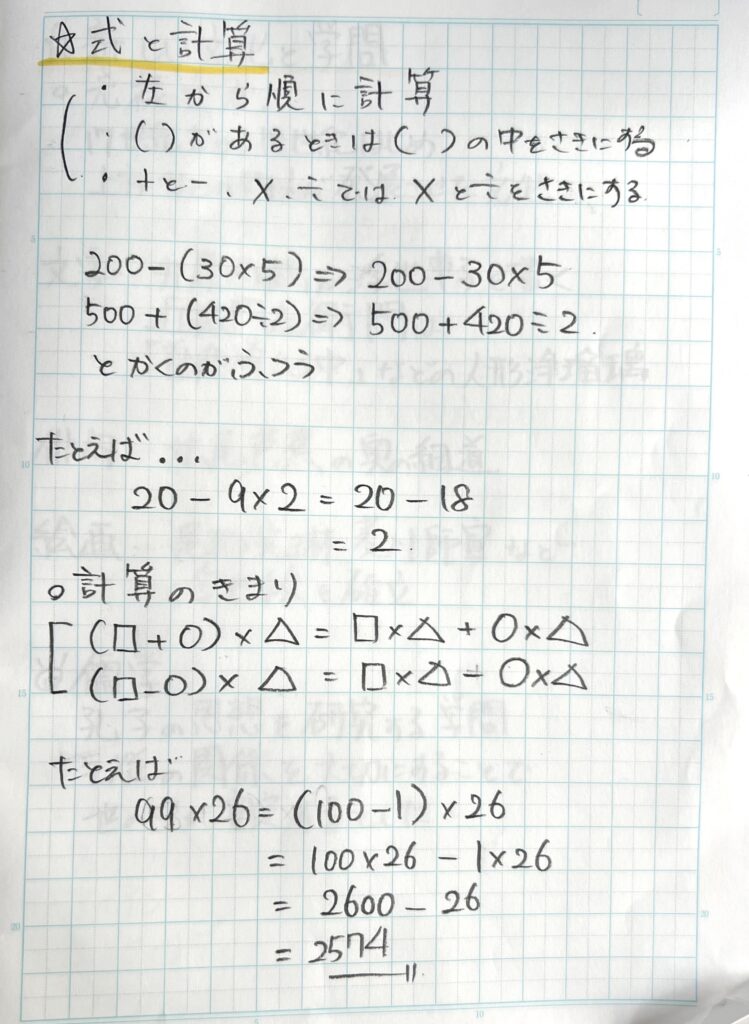 ☆式と計算
・左から順に計算
・( )があるときは( )の中をさきにする
・+と-、×、÷では、×と÷をさきにする
200-(30×5)⇒ 200-30×5
500+(420÷2)⇒ 500+420÷2.
とかくのがふつう
たとえば...
20-9×2=20-18
=2.
○計算のきまり
(□+○)×△=□×△+○×△
(□-○)×△=□×△-○×△
たとえば
99×26=(100-1)×26
=100×26-1×26
=2600-26
=2574